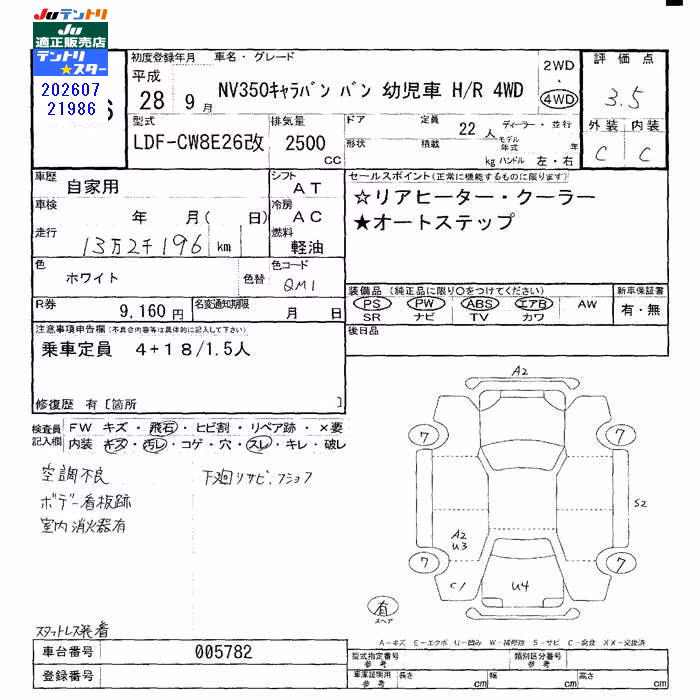 Juテントリ
Ju
適正販売店
テントリ
★スター
202607
21986
初度登録年月
平成
28 9月
車名・グレード
NV350キャラバン バン 幼児車 H/R 4WD
2WD
・
4WD
評価点
3.5
外装 内装
C C
型式
LDF-CW8E26改
排気量
2500
CC
ドア
形状
定員 22人
積載 kg
ディーラー・並行
モデル年式 年
ハンドル 左・右
車歴
自家用
シフト
AT
車検
年 月( 日)
冷房
AC
走行
13万2千196 km
燃料
軽油
セールスポイント(正常に機能するものに限ります)
☆リアヒーター・クーラー
★オートステップ
色
ホワイト
色替
色コード
QM1
R券
9,160円
名変通知期限
月 日
装備品(純正品に限り○をつけてください)
PS PW ABS エアB AW
SR ナビ TV カワ
新車保証書
有・無
後日品
注意事項申告欄(不具合内容等は具体的に記入して下さい)
乗車定員 4+18/1.5人
修復歴 有〔箇所 〕
検査員記入欄
FW キズ・飛石・ヒビ割・リペア跡・×要
内装 キズ・汚レ・コゲ・穴・スレ・キレ・破レ
空調不良
ボデー看板跡
室内消火器有
下廻りサビ、フショク
スタットレス装着
A2
7
7
S2
A2
U3
7
7
C1
U4
有
スペア
A-キズ E-エクボ U-凹み W-補修跡 S-サビ C-腐食 XX-交換済
車台番号
005782
登録番号
型式指定番号
参考
類別区分番号
参考
車庫証明用
参考
長さ cm
幅 cm
高さ cm